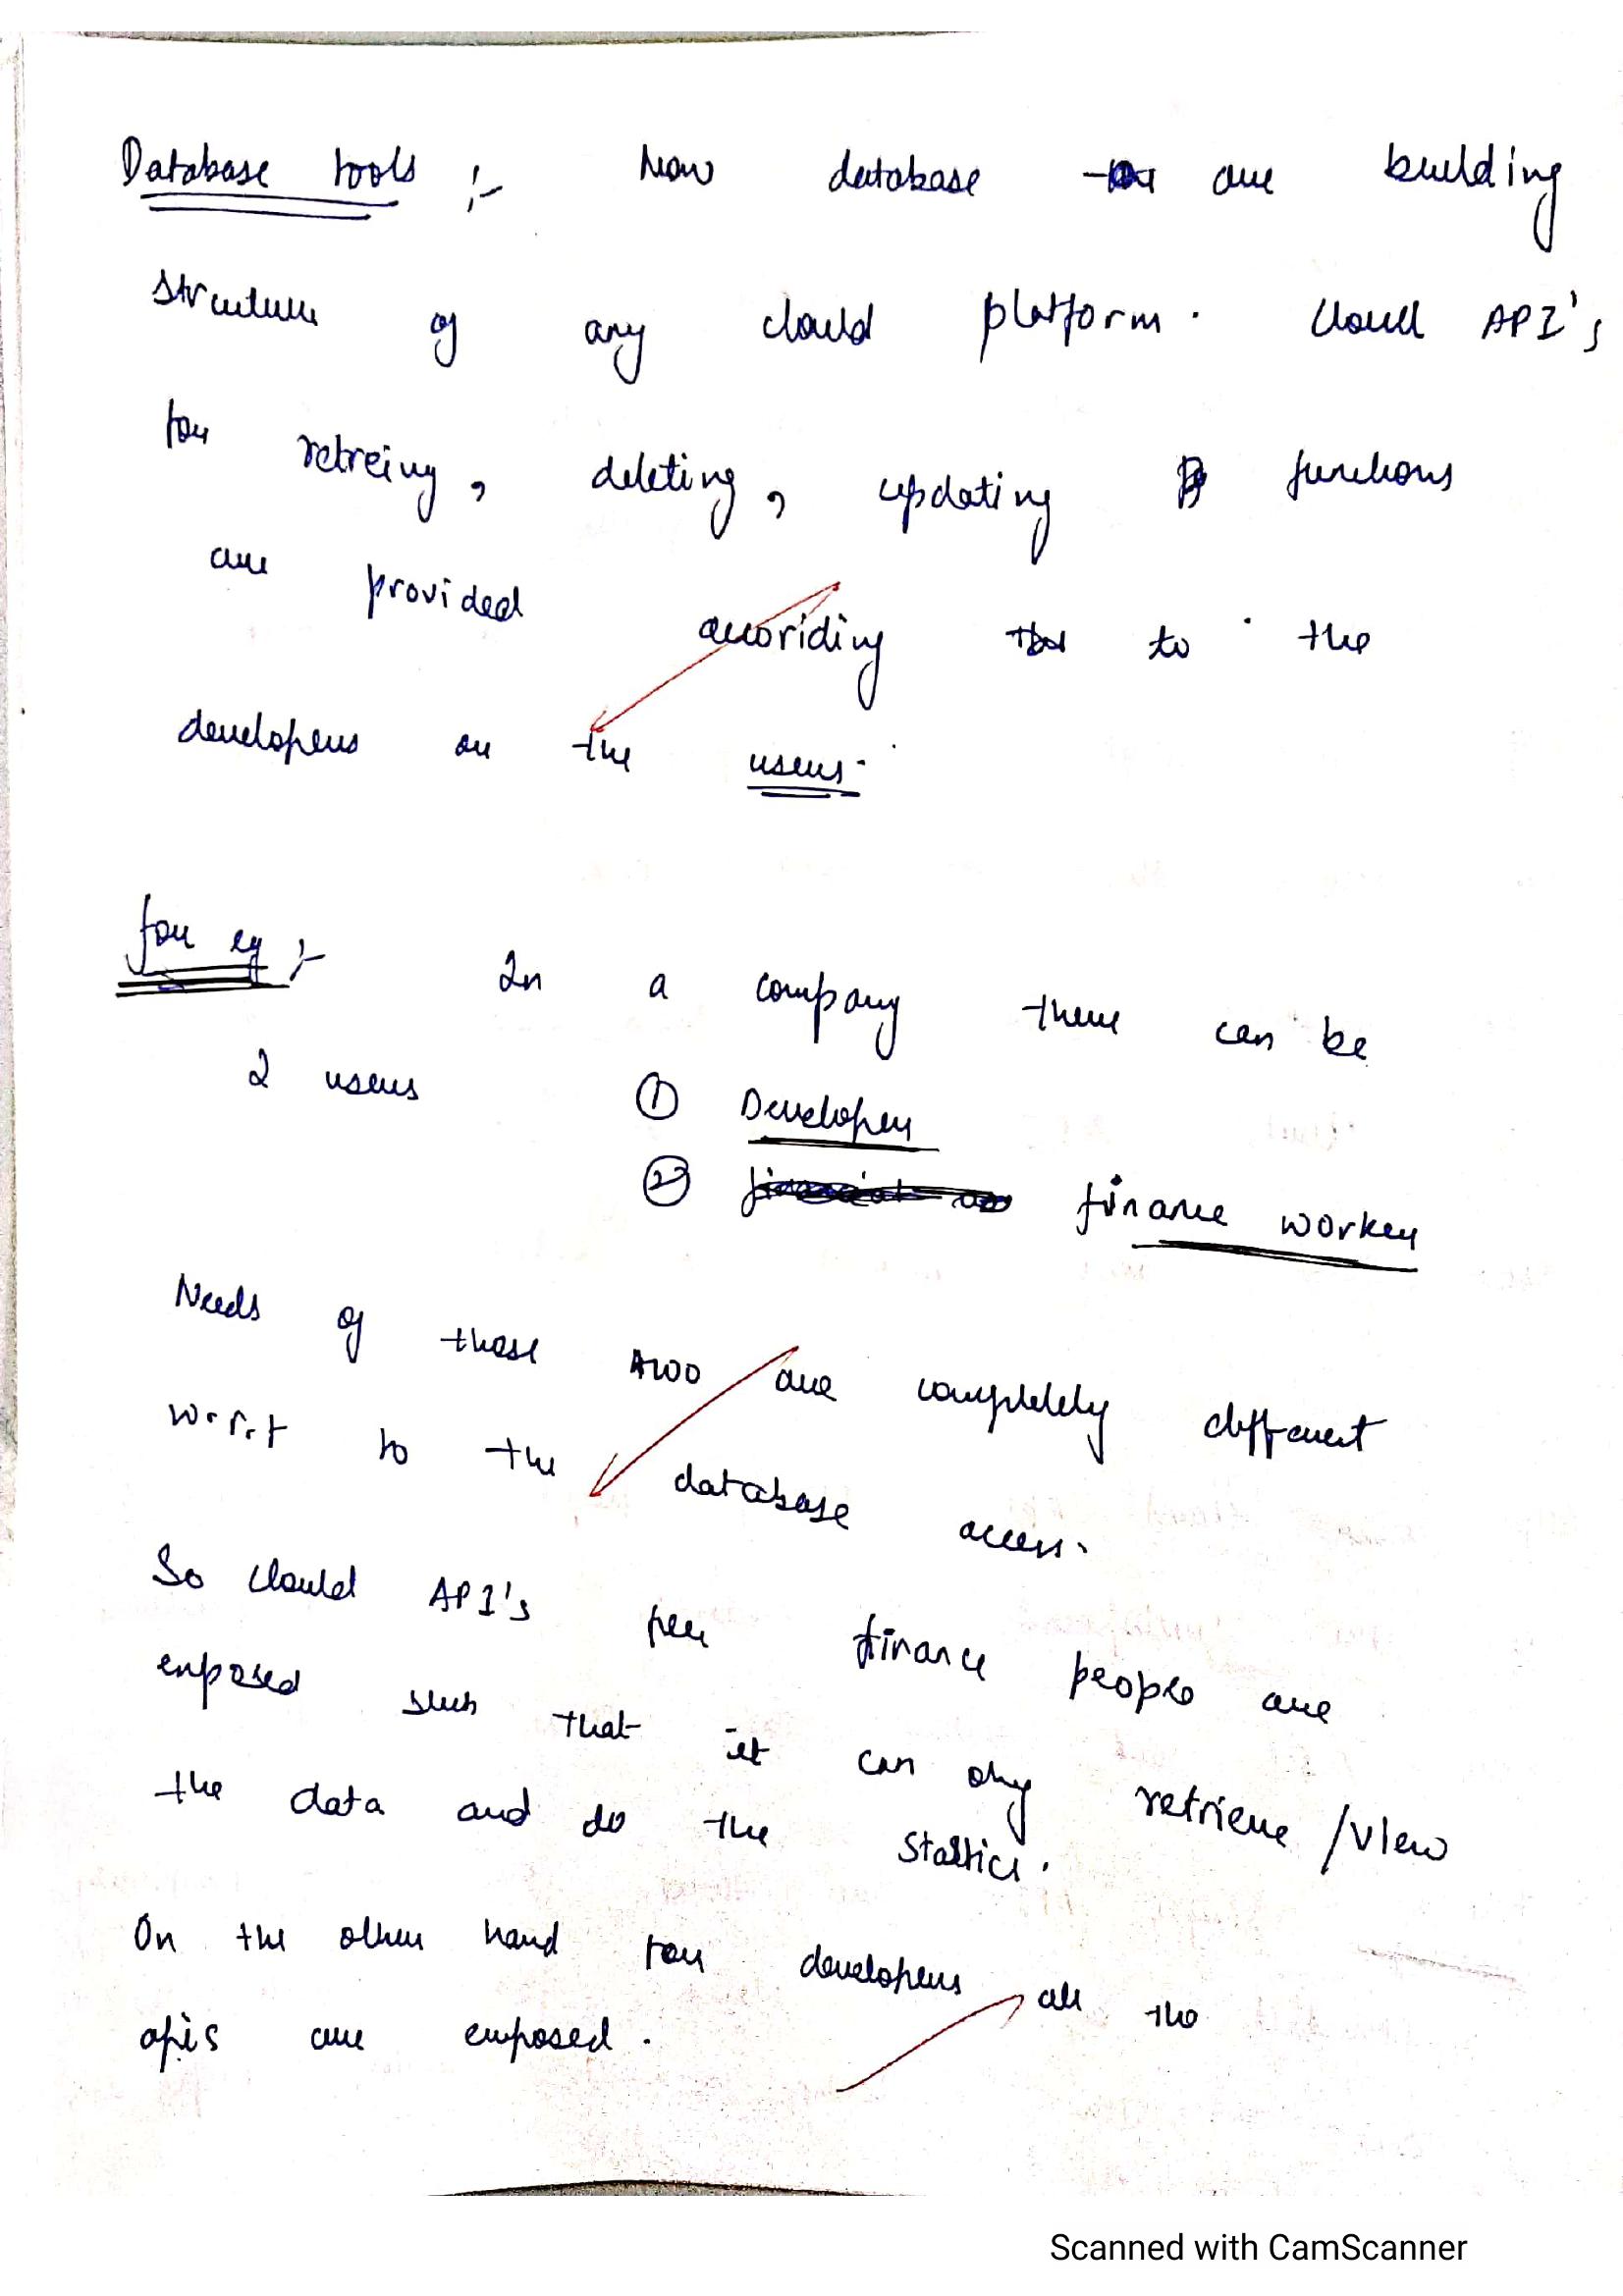 Database tools :- Now database are building
structure of any cloud platform. Cloud API's
for retreing, deleting, updating functions
are provided accoriding to the
developers or the users.
for eg :- In a company there can be
2 users ① Developer
② finance worker
Needs of those two are completely different
w.r.t to the database access.
So Cloud API's for finance people are
exposed such that it can only retrieve / view
the data and do the
On the other hand for developers all the
apis are exposed.
Scanned with CamScanner